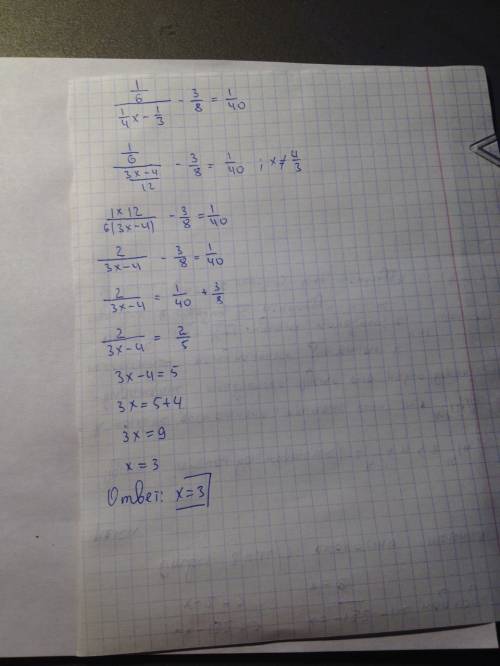 1/6 / (1/4 x - 1/3) - 3/8 = 1/40
1/6 / ((3x-4)/12) - 3/8 = 1/40 ; x ≠ 4/3
1×12 / 6(3x-4) - 3/8 = 1/40
2/(3x-4) - 3/8 = 1/40
2/(3x-4) = 1/40 + 3/8
2/(3x-4) = 2/5
3x-4=5
3x=5+4
3x=9
x=3
Ответ: x=3